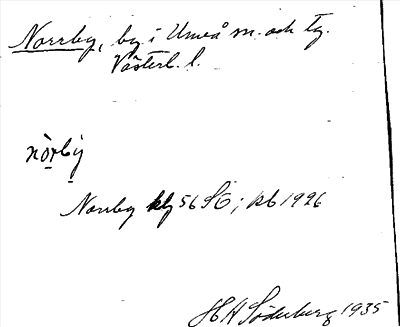 Norrby, by i Umeå sn. och tg.
Västerb. l.
nòrbÿ
Norrby 56 SÖ; kb 1926
H A Söderberg 1935